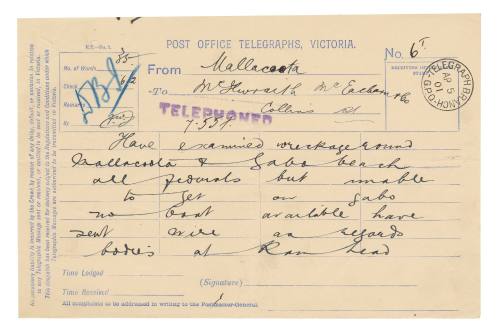 POST OFFICE TELEGRAPHS, VICTORIA.
No. 6
No. of Words
35
Check
6/2
Remarks
By
From Mallacoota
To McIlwraith McEacharn & Co
Collins St
TELEPHONED
TELEGRAPH BRANCH G.P.O.
AP 5
01
Have examined wreckage round
Mallacoota & Gabo beach
all federals but unable
to get on gabo
no boat available have
sent wire as regards
bodies at Ram head
Time Lodged
(Signature)
Time Received
All complaints to be addressed in writing to the Postmaster-General